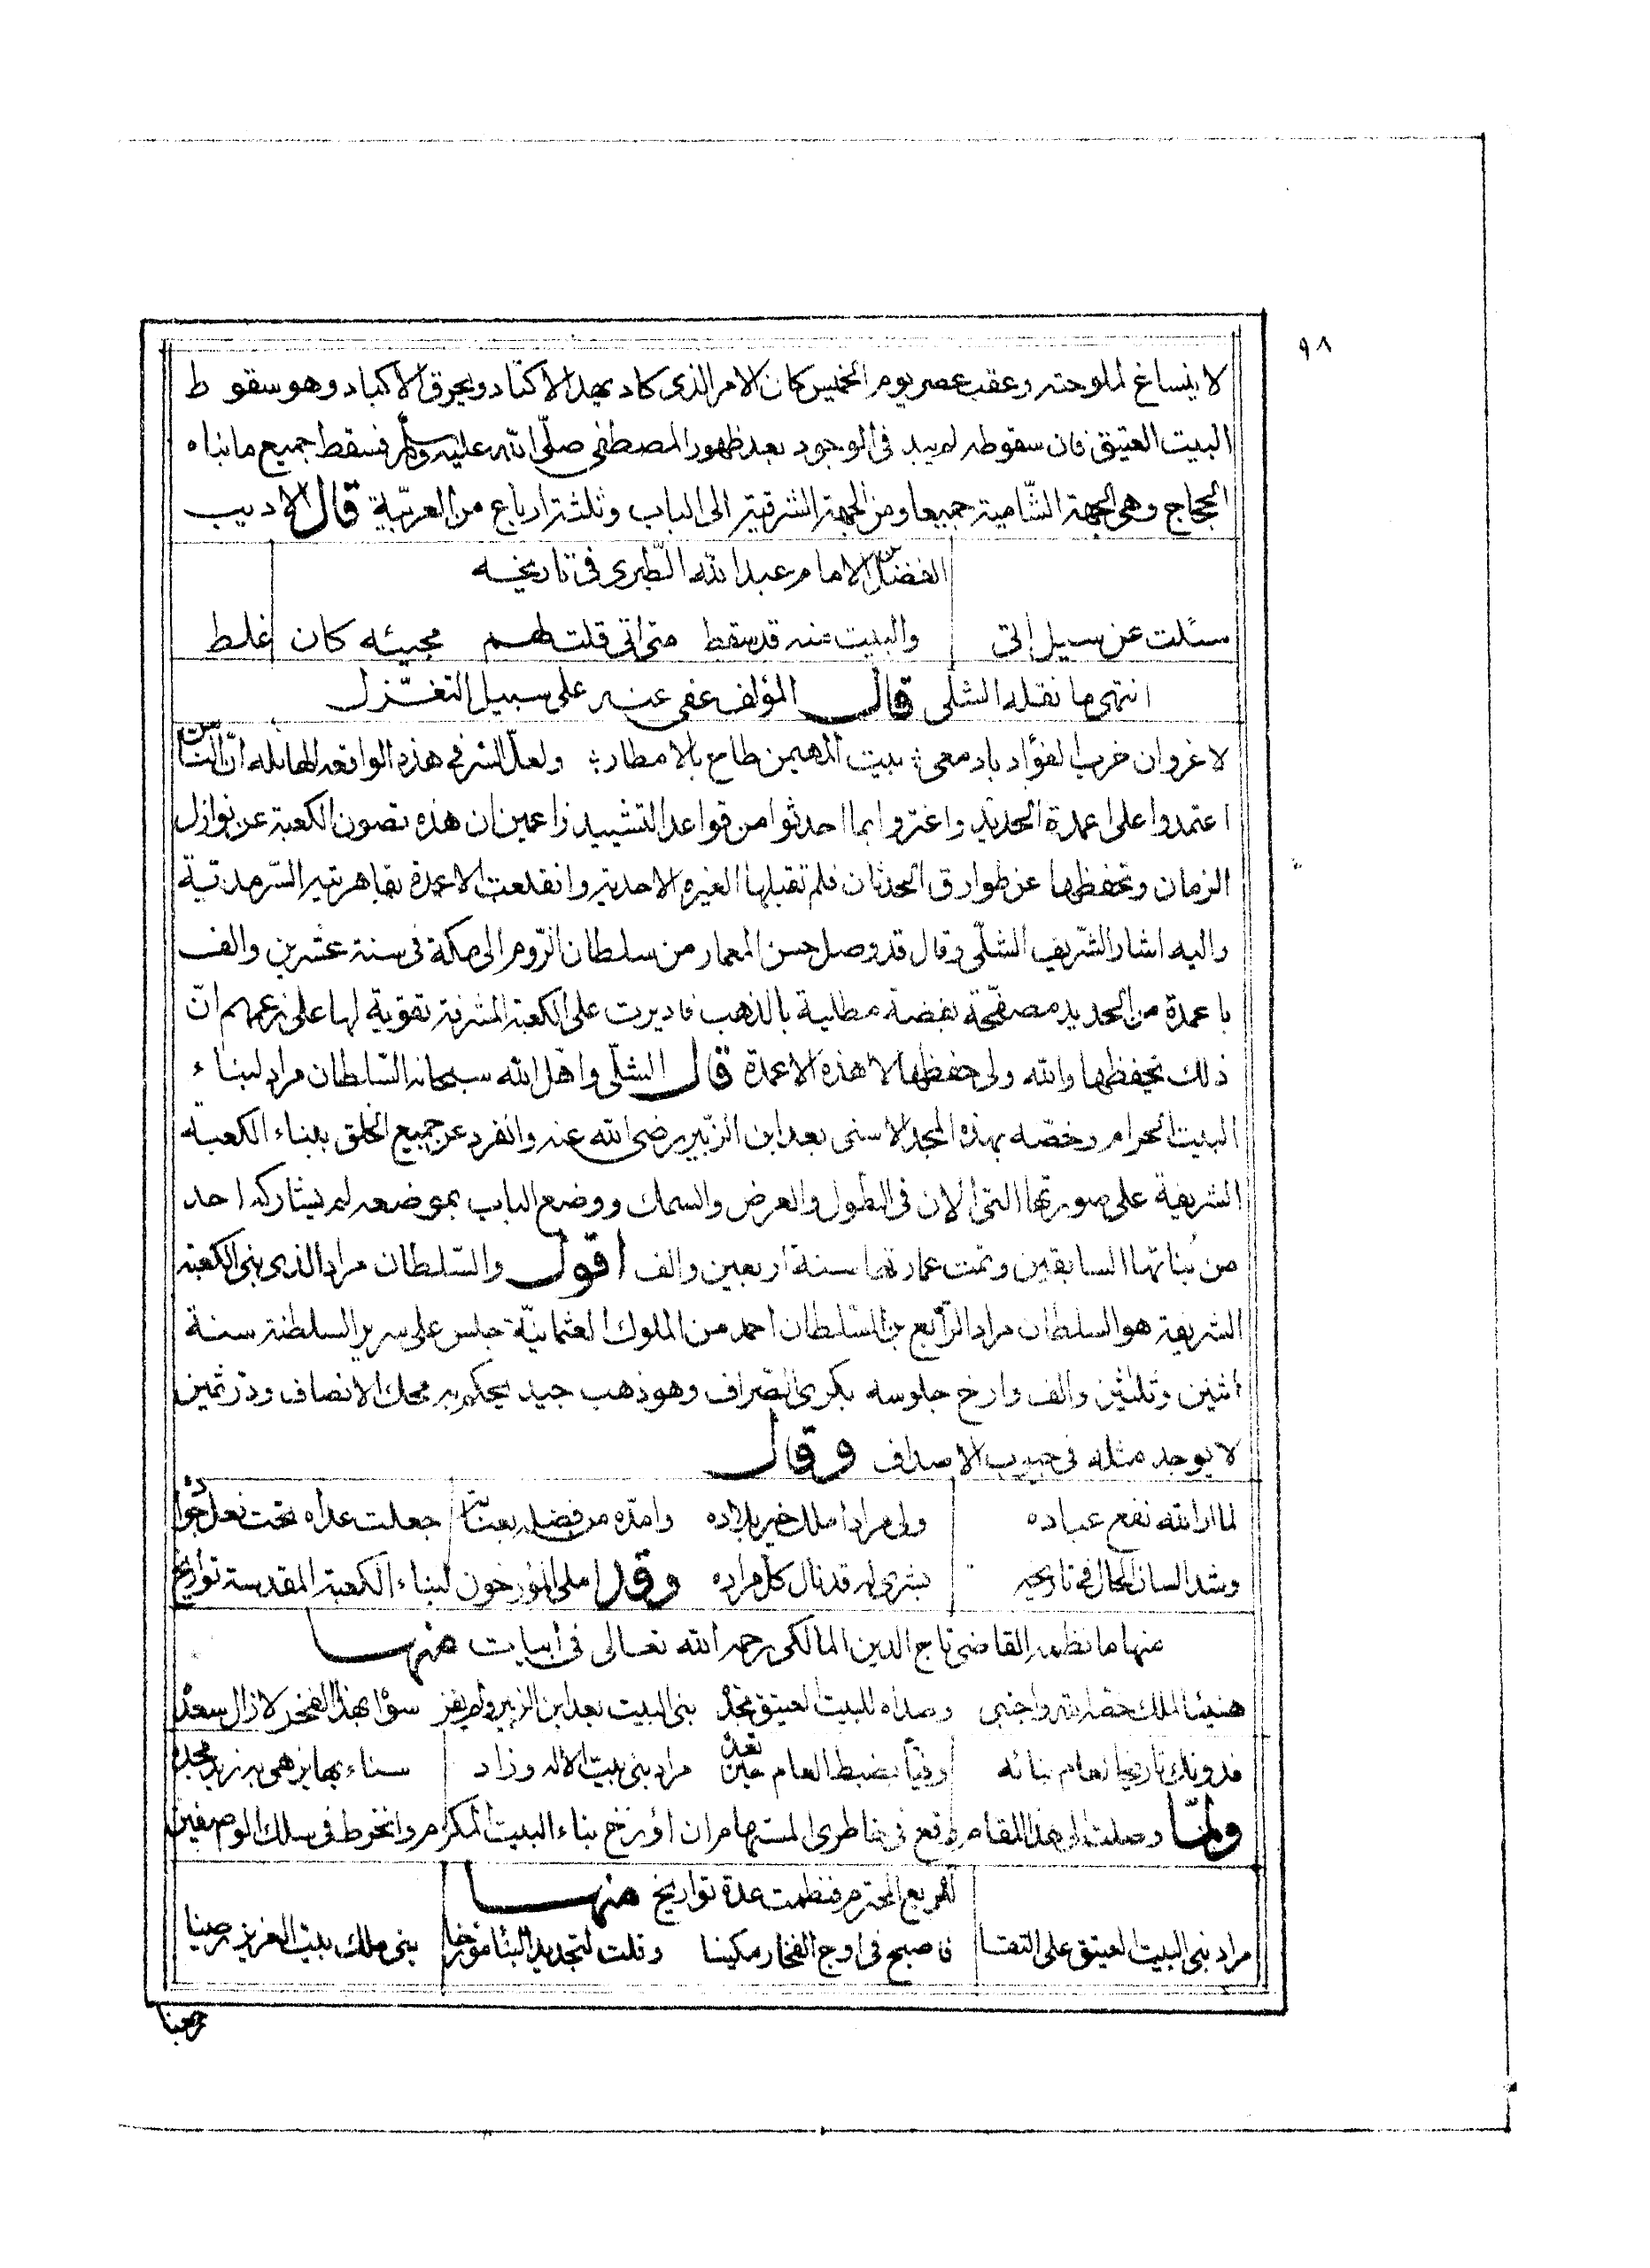 ٩٨
لا ينساغ لملوحته وعقب عصر يوم الخميس كان الامر الذى كاد يهد الاكتاد ويحرق الاكباد وهو سقوط
البيت العتيق فان سقوطه لم يبد فى الوجود بعد ظهور المصطفى صلّى الله عليه وسلّم فسقط جميع ما بناه
الحجاج وهى الجهة الشّامية جميعا ومن الجهة الشرقية الى الباب وثلثة ارباع من الغربيّة قال الاديب
الفضل بن الامام عبد الله الطّبرى فى تاريخه
سئلت عن سيل اتى والبيت منه قد سقط متى اتى قلت لهم مجيئه كان غلط
انتهى ما نقله الشلى قال المؤلف عفى عنه على سبيل التغـزل
لا غروان خرب الفؤاد بادمعى بيت المهيمن طاح بالامطار ولعلّ السّر فى هذه الواقعة الهايله انّ النّاس
اعتمدوا على اعمدة الحديد واغتروا بما احدثوا من قواعد التشييد زاعمين ان هذه تصون الكعبة عن نوازل
الزمان وتحفظها عن طوارق الحدثان فلم تقبلها الغيرة الاحدية وانقلعت الاعمدة بقاهريته السّرمديّة
واليه اشار الشّريف الشلّى وقال قد وصل حسن المعمار من سلطان الرّوم الى مكة فى سنة عشرين والف
باعمدة من الحديد مصفّحة بفضة مطلية بالذهب فاديرت على الكعبة المشرفة تقوية لها على زعمهم انّ
ذلك تحفظها والله ولى حفظها لا هذة الاعمدة قال الشلّى واهّل الله سبحانه السّلطان مراد لبناء
البيت الحرام وخصّه بهذه المجد الاسنى بعد ابن الزّبير رضى الله عنه وانفرد عن جميع الخلق ببناء الكعبة
الشريفة على صورتها التى الان فى الطول والعرض والسمك ووضع الباب بموضعه لم يشاركه احد
من بُناتها السابقين وتمت عمارتها سنة اربعين والف اقول والسّلطان مراد الذى بنى الكعبة
الشريفة هو السلطان مراد الرّابع بن السّلطان احمد من الملوك العثمانيّة جلس على سرير السلطنة سنة
أثنين وثلثين والف وارخ جلوسه بكرى الصّراف وهو ذهب جيد يحكم به محك الانصاف ودرّ ثمين
لا يوجد مثله فى جيوب الاصداف وقال
لما اراد الله نفع عباده ولى مرادا ملك خير بلاده وامدّه من فضله بعناية جعلت عداه تحت نعل جواده
وشدا لسان الحال فى تاريخه بشرى له قد نال كل مراده وقد املى المؤرخون لبناء الكعبة المقدسة تواريخ
منها ما نظمه القاضى تاج الدين المالكى رحمه الله تعالى فى أبيات منها
هنيئا لملك خصّه الله واجتبى وصداه للبيت العتيق يجدّد بنى البيت بعد ابن الزبير ولم يفز سواه بهذا الفخر لا زال سعد
فدونك تاريخا لعام بنائه وفيّا بضبط العام حين تعدّه مراد بنى بيت الاله وزاد سناء بهايزهى به زيد مجده
ولمّا وصلت الى هذا المقام وقع فى خاطرى المستهام ان أؤرخ بناء البيت المكرّم وانخرط فى سلك الواصفين
لتربيع المحترم فنظمت عدة تواريخ منها
مراد بنى البيت العتيق على التقـا فاصبح فى اوج الفخار مكينا وقلت لتجديد البنا مؤرخا بنى ملك بيت العزيز رصينا